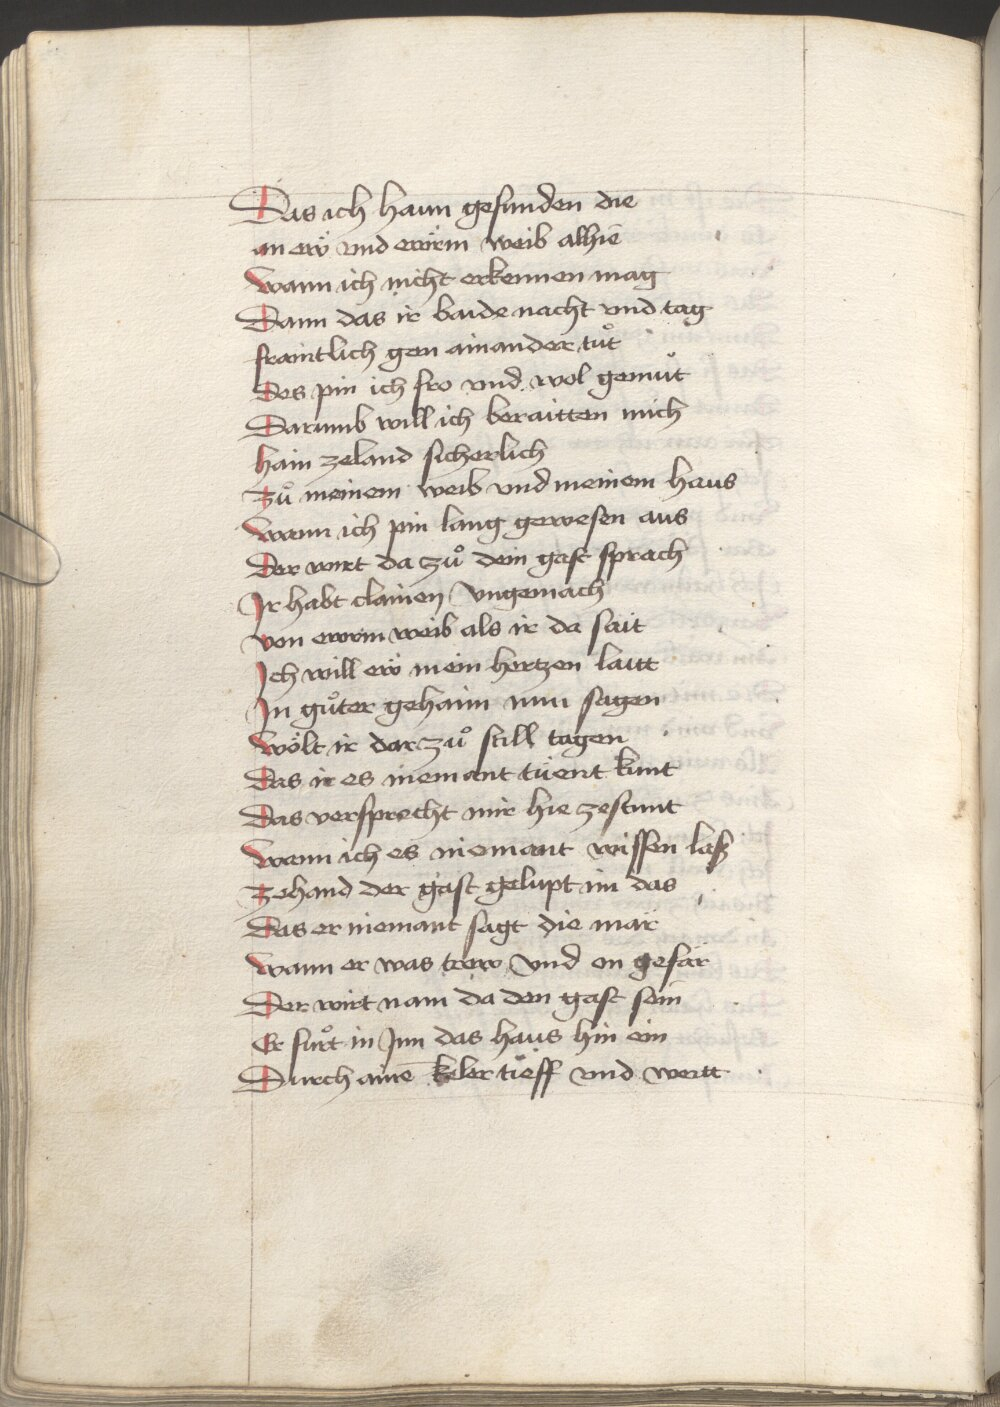 Das ich haun gefunden die
an eẅ vnd ewrm weib alhie
wann ich nicht erkennen mag
Dann das ir baide nacht vnd tag
fraintlich gen ainander tuͦt
Des pin ich fro vnd wol gemuͦt
Darumb will ich beraitten mich
hain zeland sicherlich
Zuͦ meinem weib vnd meinem haus
wann ich pin lang gewesen aus
Der wirt da zuͦ dem gast sprach
Ir habt clainen vngemach
von ewrm weib als ir da sait
Ich will eẅ mein hertzen laitt
In guͦter gehaim nun sagen
wölt ir dar zuͦ still tagen
Das ir es niemant tüent kunt
Das versprecht mir hie zestunt
wann ich es niemant wissen laß
Zehand der gast gelupt im das
Das er niemant sagt die mär
wann er was trew vnd on gefär
Der wirt nam da den gast sein
Er fuͦrt in Jnn das haus hin ein
Durch aine̅ keler tieff vnd weitt